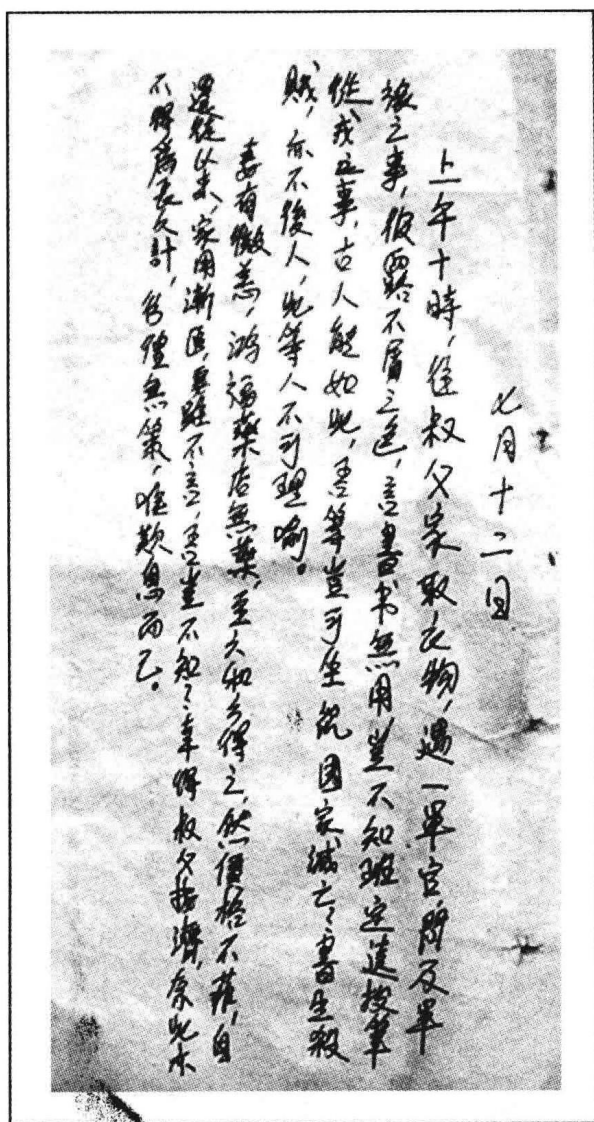 七月十二日
上午十時，往叔父家取衣物，遇一軍官，所及軍
旅之事，彼露不屑之色，言書书無用，豈不知班定遠投筆
從戎之事，古人能如此，吾等豈可坐視國家滅亡，書生殺
賊，亦不後人，此等人不可理喻。
妻有微恙，鴻福藥店無藥，至大和方得之，然價格不菲，自
還從以来，家用漸匱，妻雖不言，吾豈不知，幸得叔父接濟，奈此亦
不得為長久計，吾惟無策，唯歎息而已。